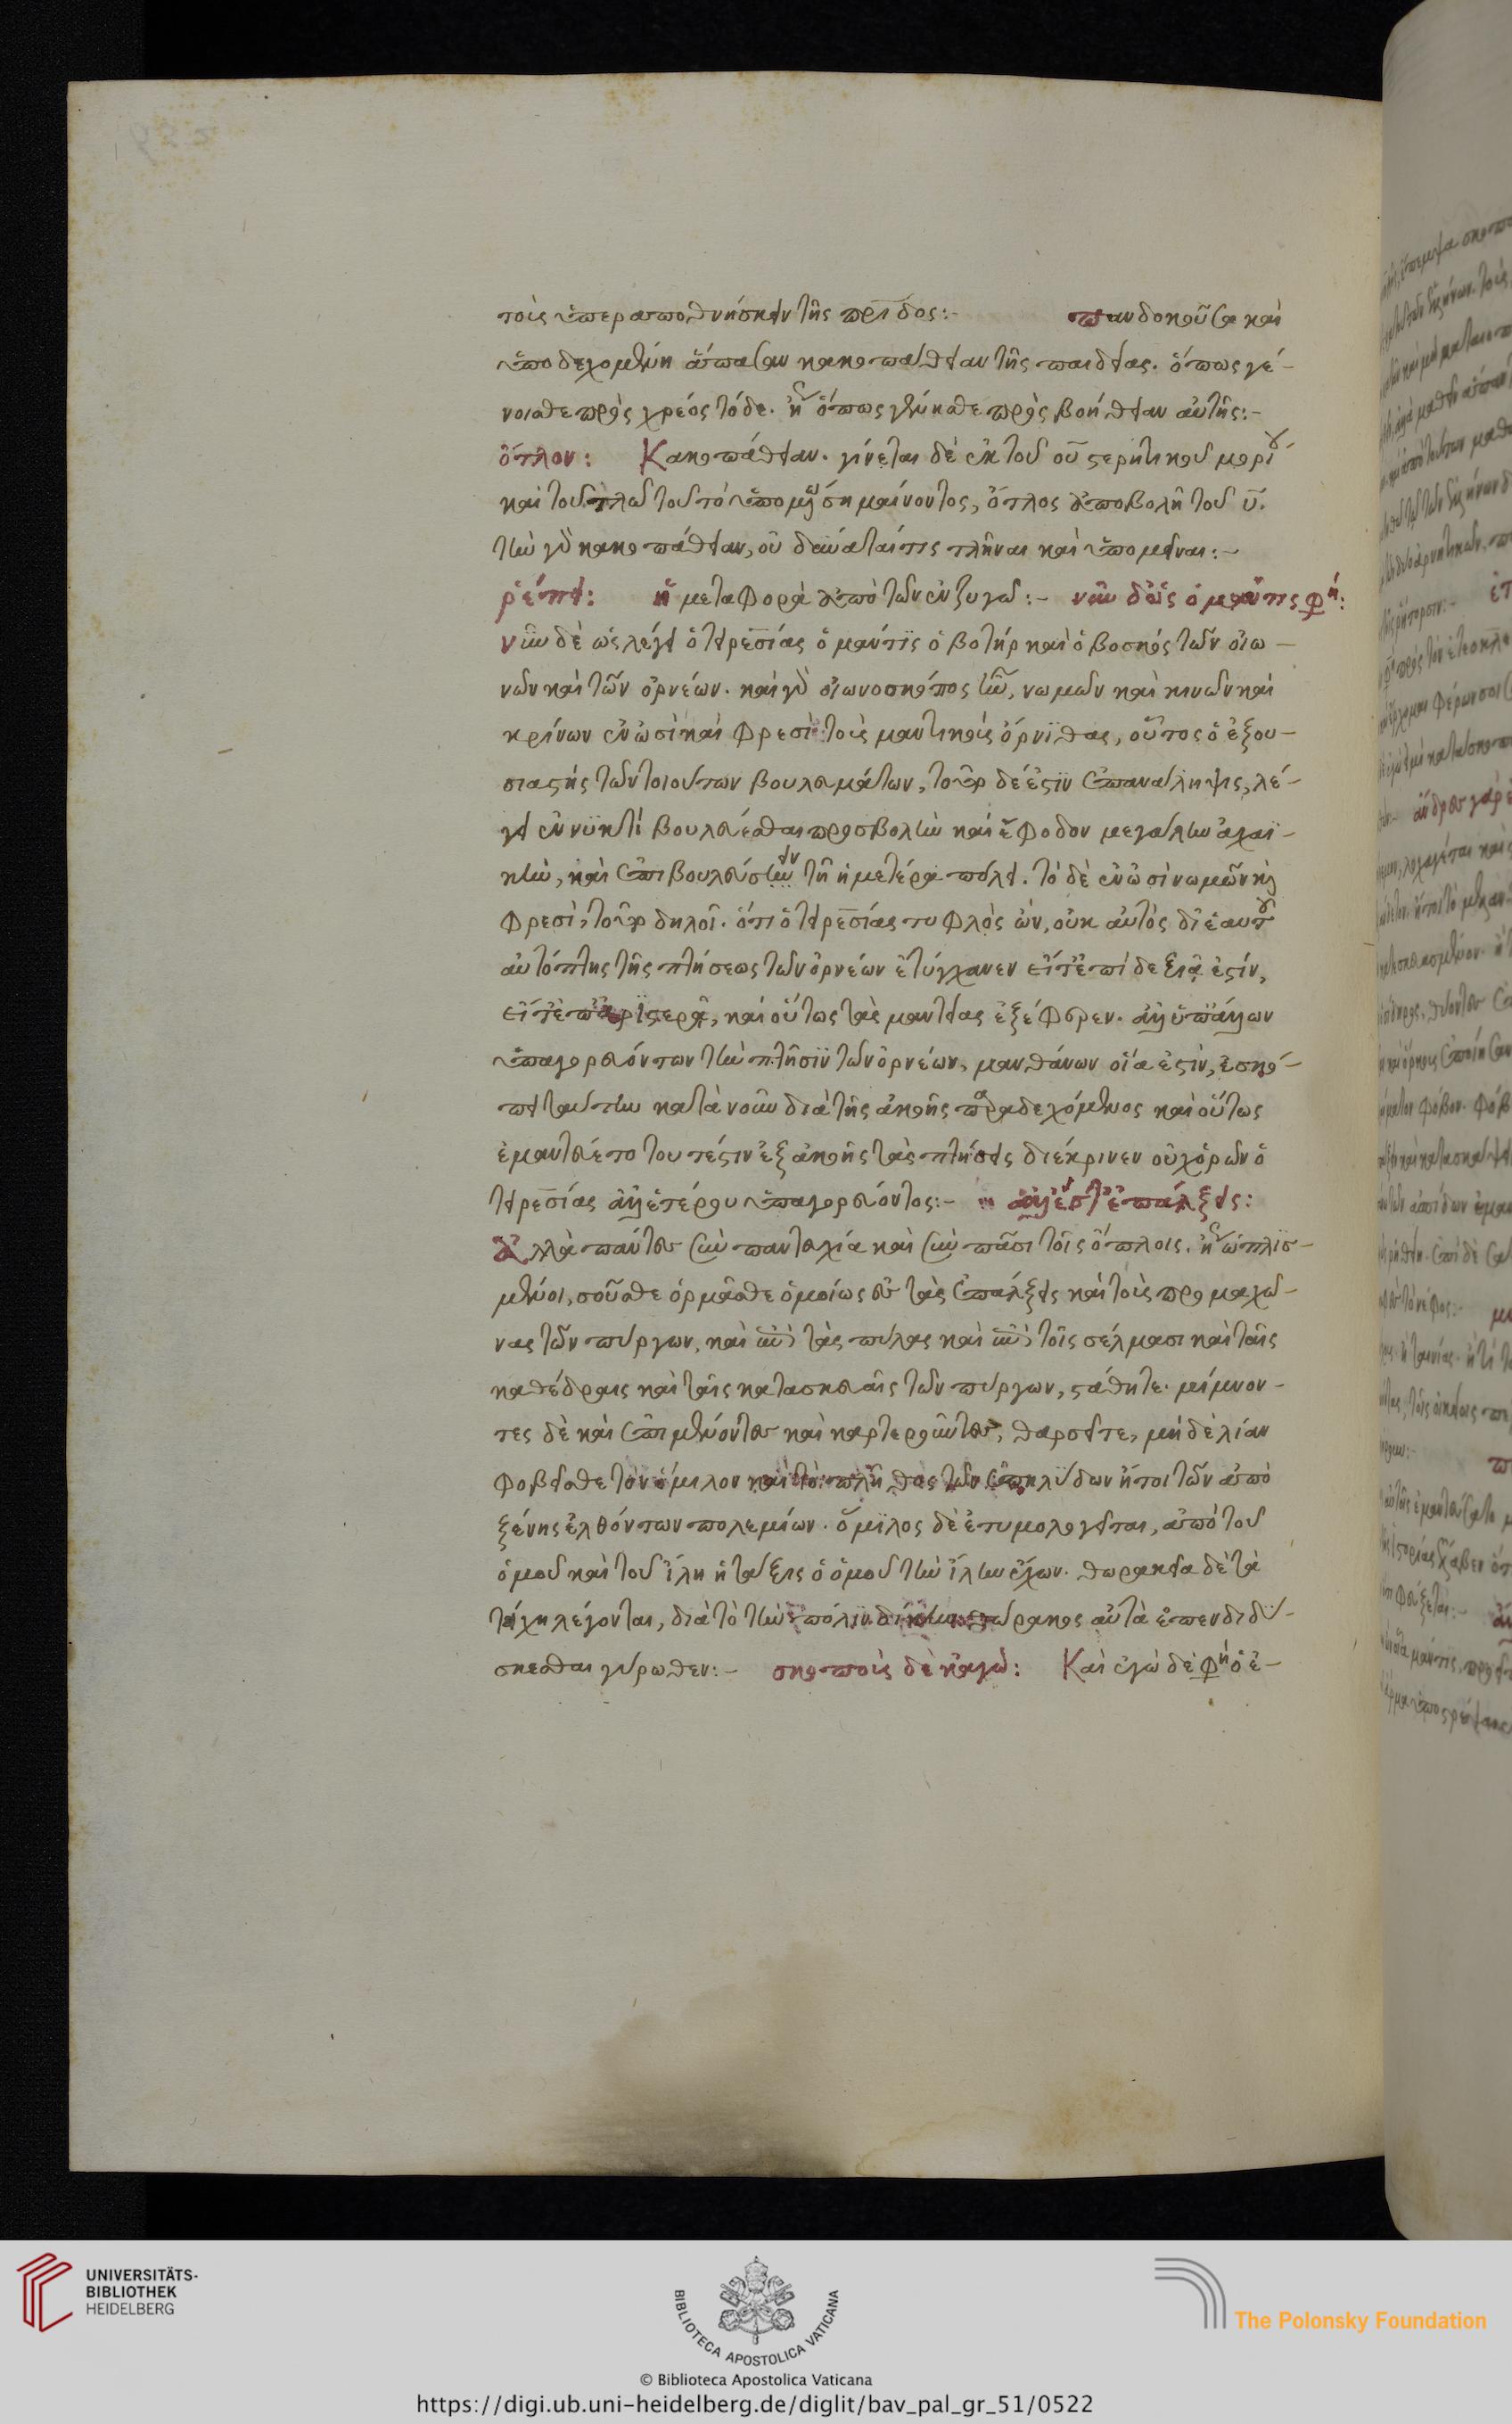 τοὺς ὑπεραποθνήσκειν τῆς πρ̅ιδος:- πανδοκοῦσα καὶ
ὑποδεχομένη ἅπασαν κακοπάθειαν τῆς παιδείας. ὅπως γέ-
νοισθε πρὸς χρέος τόδε. ἢ ὅπως γένησθε πρὸς βοήθειαν αὐτῆς:-
ὄτλον: Κακοπάθειαν. γίνεται δὲ ἐκ τοῦ οὐ στερητικοῦ μορίου
καὶ τοῦ τλῶ τοῦ τὸ ὑπομένω σημαίνοντος, ὄτλος ἀποβολῇ τοῦ υ̅.
τὴν γὰρ κακοπάθειαν, οὐ δύναταί τις τλῆναι καὶ ὑπομεῖναι:-
ῥέπει: ἡ μεταφορὰ ἀπὸ τῶν ἐν ζυγῶ:- νῦν δ' ὡς ὁ μάντις φη:
νῦν δὲ ὡς λέγει ὁ τειρεσίας ὁ μάντις ὁ βοτὴρ καὶ ὁ βοσκὸς τῶν οἰω-
νῶν καὶ τῶν ὀρνέων. καὶ γὰρ οἰωνοσκόπος ἦν, νωμῶν καὶ κινῶν καὶ
κρίνων ἐν ὠσὶ καὶ φρεσὶ τοὺς μαντικοὺς ὄρνιθας, οὗτος ὁ ἐξου-
σιαστὴς τῶν τοιούτων βουλευμάτων, τοῦτο δέ ἐστιν ἐπανάληψις, λέ-
γει ἐν νυκτὶ βουλεύεσθαι προσβολὴν καὶ ἔφοδον μεγάλην ἀχαϊ-
κὴν, καὶ ἐπιβουλεύσειν τῇ ἡμετέρα πόλει. τὸ δὲ ἐν ὠσὶ νωμῶν καὶ
φρεσὶ, τοῦτο δηλοῖ. ὅτι ὁ τειρεσίας τυφλὸς ὢν, οὐκ αὐτὸς δι' ἑαυτοῦ
αὐτόπτης τῆς πτήσεως τῶν ὀρνέων ἐτύγχανεν εἴτ' ἐπὶ δεξιᾷ ἐστίν,
εἴτ' ἐπ' ἀριστερᾷ, καὶ οὕτως τὰς μαντείας ἐξέφερεν. ἀλλ' ὑπ' ἄλλων
ὑπαγορευόντων τὴν πτῆσιν τῶν ὀρνέων, μανθάνων οἵα ἐστὶν, ἐσκό-
πει ταύτην κατὰ νοῦν διὰ τῆς ἀκοῆς παραδεχόμενος καὶ οὕτως
ἐμαντεύετο τουτέστιν ἐξ ἀκοῆς τὰς πτήσεις διέκρινεν οὐχ ὁρῶν ὁ
τειρεσίας ἀλλ' ἑτέρου ὑπαγορεύοντος:- ἀλλ' ἔς τ' ἐπάλξεις:
Ἀλλὰ πάντες σὺν παντευχία καὶ σὺν πᾶσι τοῖς ὅπλοις. ἢ ὡπλισ-
μένοι, σοῦσθε ὁρμᾶσθε ὁμοίως εἰς τὰς ἐπάλξεις καὶ τοὺς προμαχῶ-
νας τῶν πύργων, καὶ ἐπὶ τὰς πύλας καὶ ἐπὶ τοῖς σέλμασι καὶ ταῖς
καθέδραις καὶ ταῖς κατασκευαῖς τῶν πύργων, στάθητε. μίμνον-
τες δὲ καὶ ἐπιμένοντες καὶ καρτεροῦντες, θαρσεῖτε, μὴ δὲ λίαν
φοβεῖσθε τὸν ὅμιλον καὶ τὸ πλῆθος τῶν ἐπηλύδων ἤτοι τῶν ἀπὸ
ξένης ἐλθόντων πολεμίων. ὅμιλος δὲ ἐτυμολογεῖται, ἀπὸ τοῦ
ὁμοῦ καὶ τοῦ ἴλη ἡ τάξις ὁ ὁμοῦ τὴν ἴλην ἔχων. θωρακεῖα δὲ τὰ
τείχη λέγονται, διὰ τὸ τὴν πόλιν δίκην θώρακος αὐτὰ ἐπενδιδύ-
σκεσθαι γύρωθεν:- σκοποὺς δὲ κἀγὼ: Καὶ ἐγὼ δὲ φη ὁ ἐ-
UNIVERSITÄTS-
BIBLIOTHEK
HEIDELBERG
BIBLIOTECA APOSTOLICA VATICANA
The Polonsky Foundation
© Biblioteca Apostolica Vaticana
https://digi.ub.uni-heidelberg.de/diglit/bav_pal_gr_51/0522